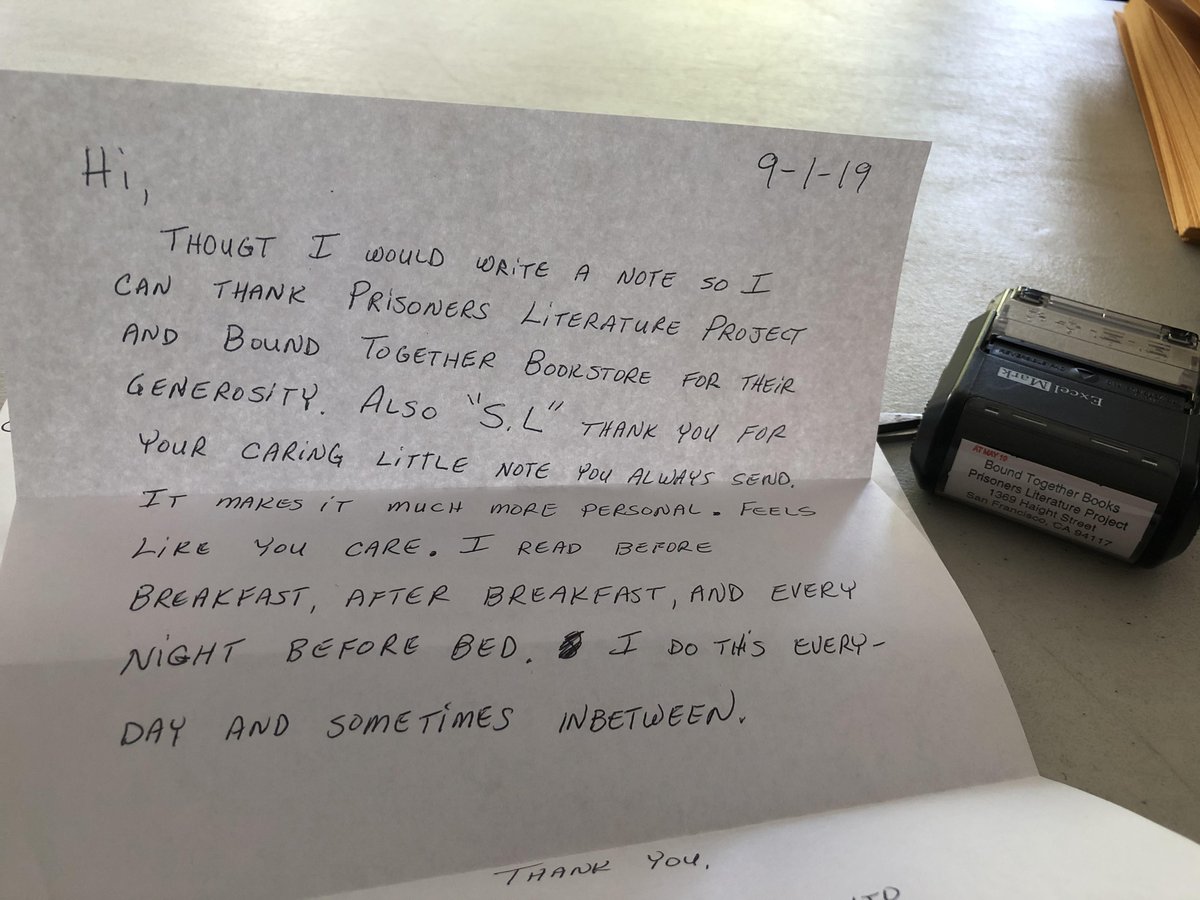 Hi,
9-1-19
THOUGT I WOULD WRITE A NOTE SO I
CAN THANK PRISONERS LITERATURE PROJECT
AND BOUND TOGETHER BOOKSTORE FOR THEIR
GENEROSITY. ALSO "S.L" THANK YOU FOR
YOUR CARING LITTLE NOTE YOU ALWAYS SEND.
IT MAKES IT MUCH MORE PERSONAL. FEELS
LIKE YOU CARE. I READ BEFORE
BREAKFAST, AFTER BREAKFAST, AND EVERY
NIGHT BEFORE BED. I DO THIS EVERY-
DAY AND SOMETIMES INBETWEEN.
THANK YOU.
ExcelMark
AT MAY 10
Bound Together Books
Prisoners Literature Project
1369 Haight Street
San Francisco, CA 94117